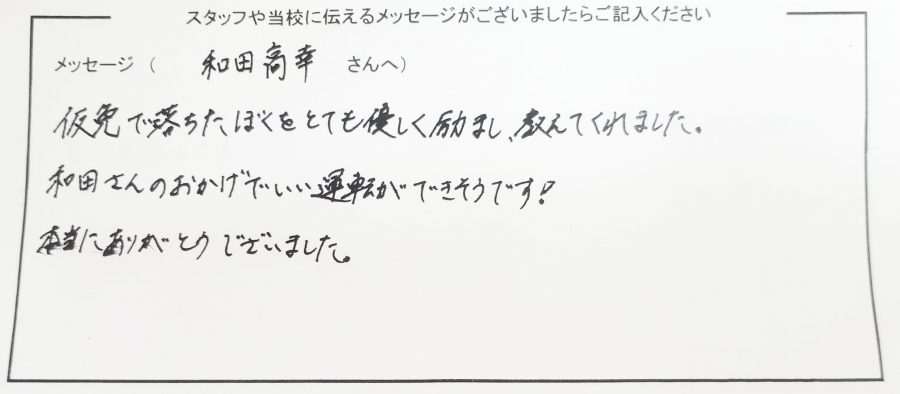 スタッフや当校に伝えるメッセージがございましたらご記入ください
メッセージ（ 和田高幸 さんへ）
仮免で落ちたぼくをとても優しく励まし、教えてくれました。
和田さんのおかげでいい運転ができそうです！
本当にありがとうございました。